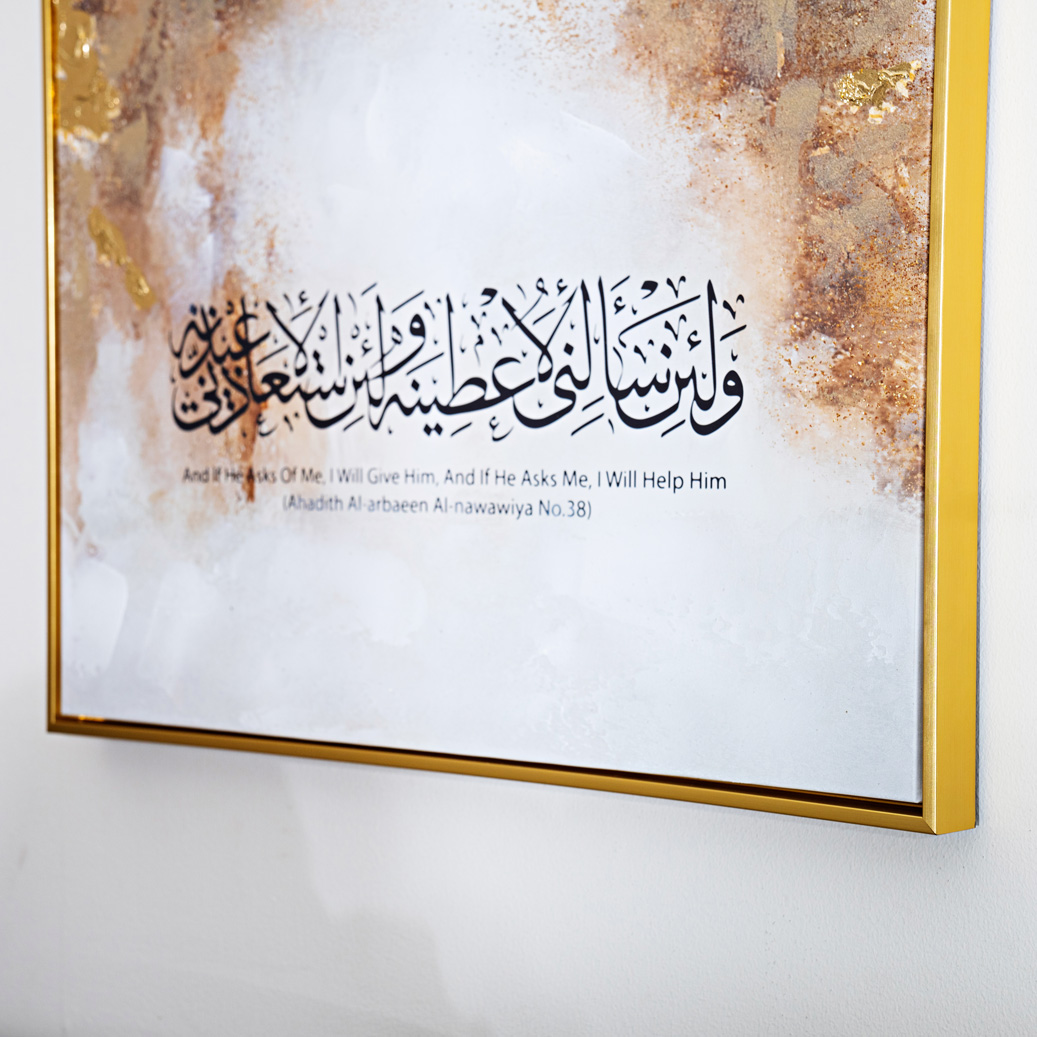 ولئن سألني لأعطينه ولئن استعاذني لأعيذنه
And If He Asks Of Me, I Will Give Him, And If He Asks Me, I Will Help Him
(Ahadith Al-arbaeen Al-nawawiya No.38)